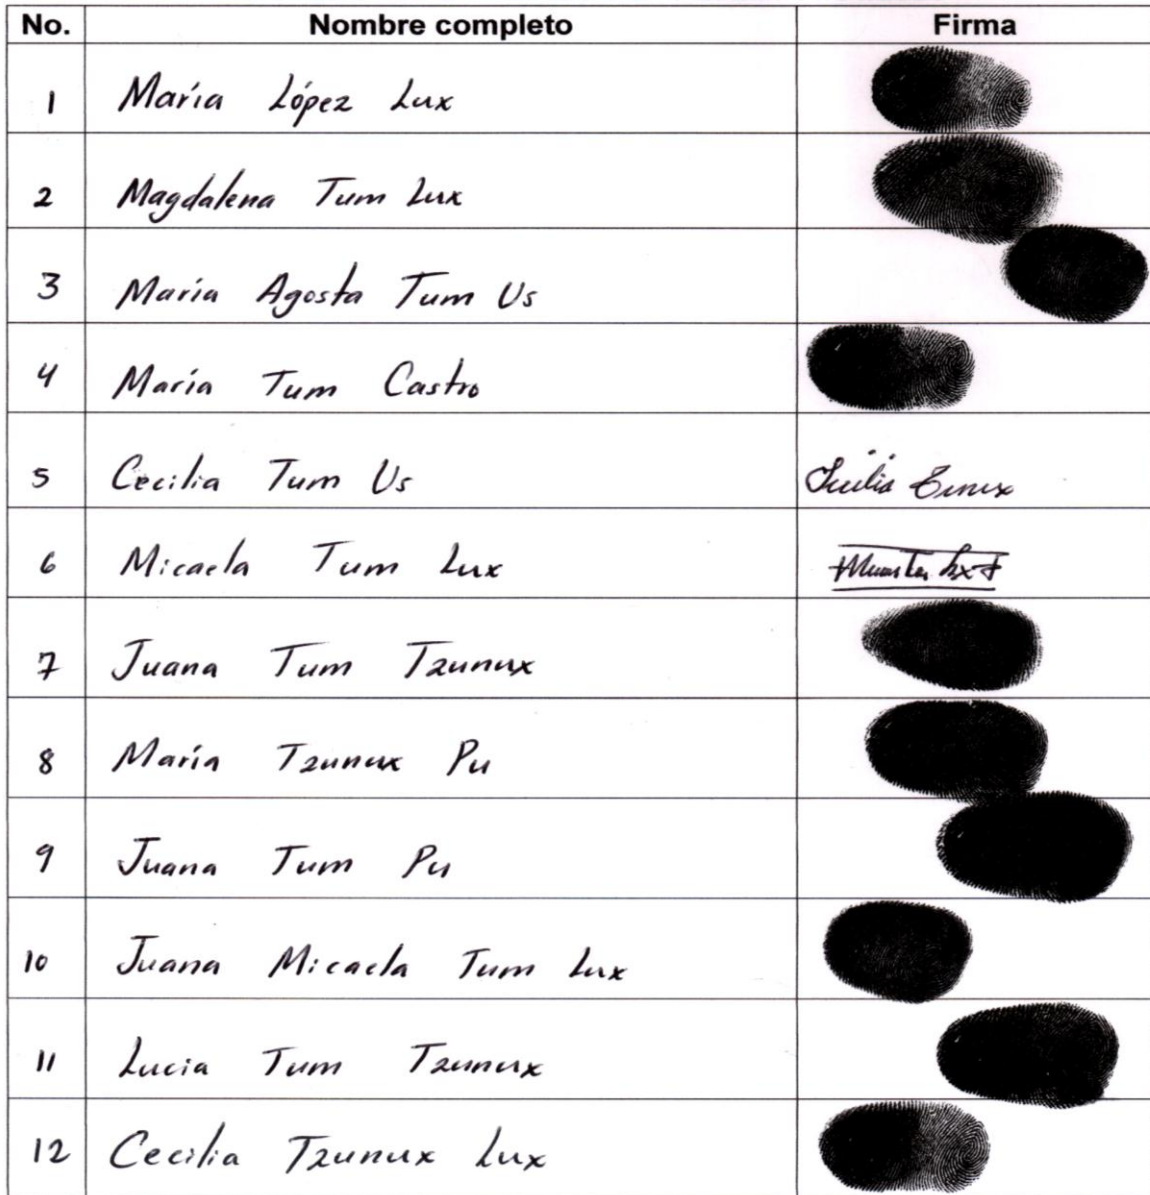 No. Nombre completo Firma
1 María López Lux
2 Magdalena Tum Lux
3 María Agosta Tum Us
4 María Tum Castro
5 Cecilia Tum Us
6 Micaela Tum Lux
7 Juana Tum Tzunux
8 María Tzunux Pu
9 Juana Tum Pu
10 Juana Micaela Tum Lux
11 Lucia Tum Tzunux
12 Cecilia Tzunux Lux